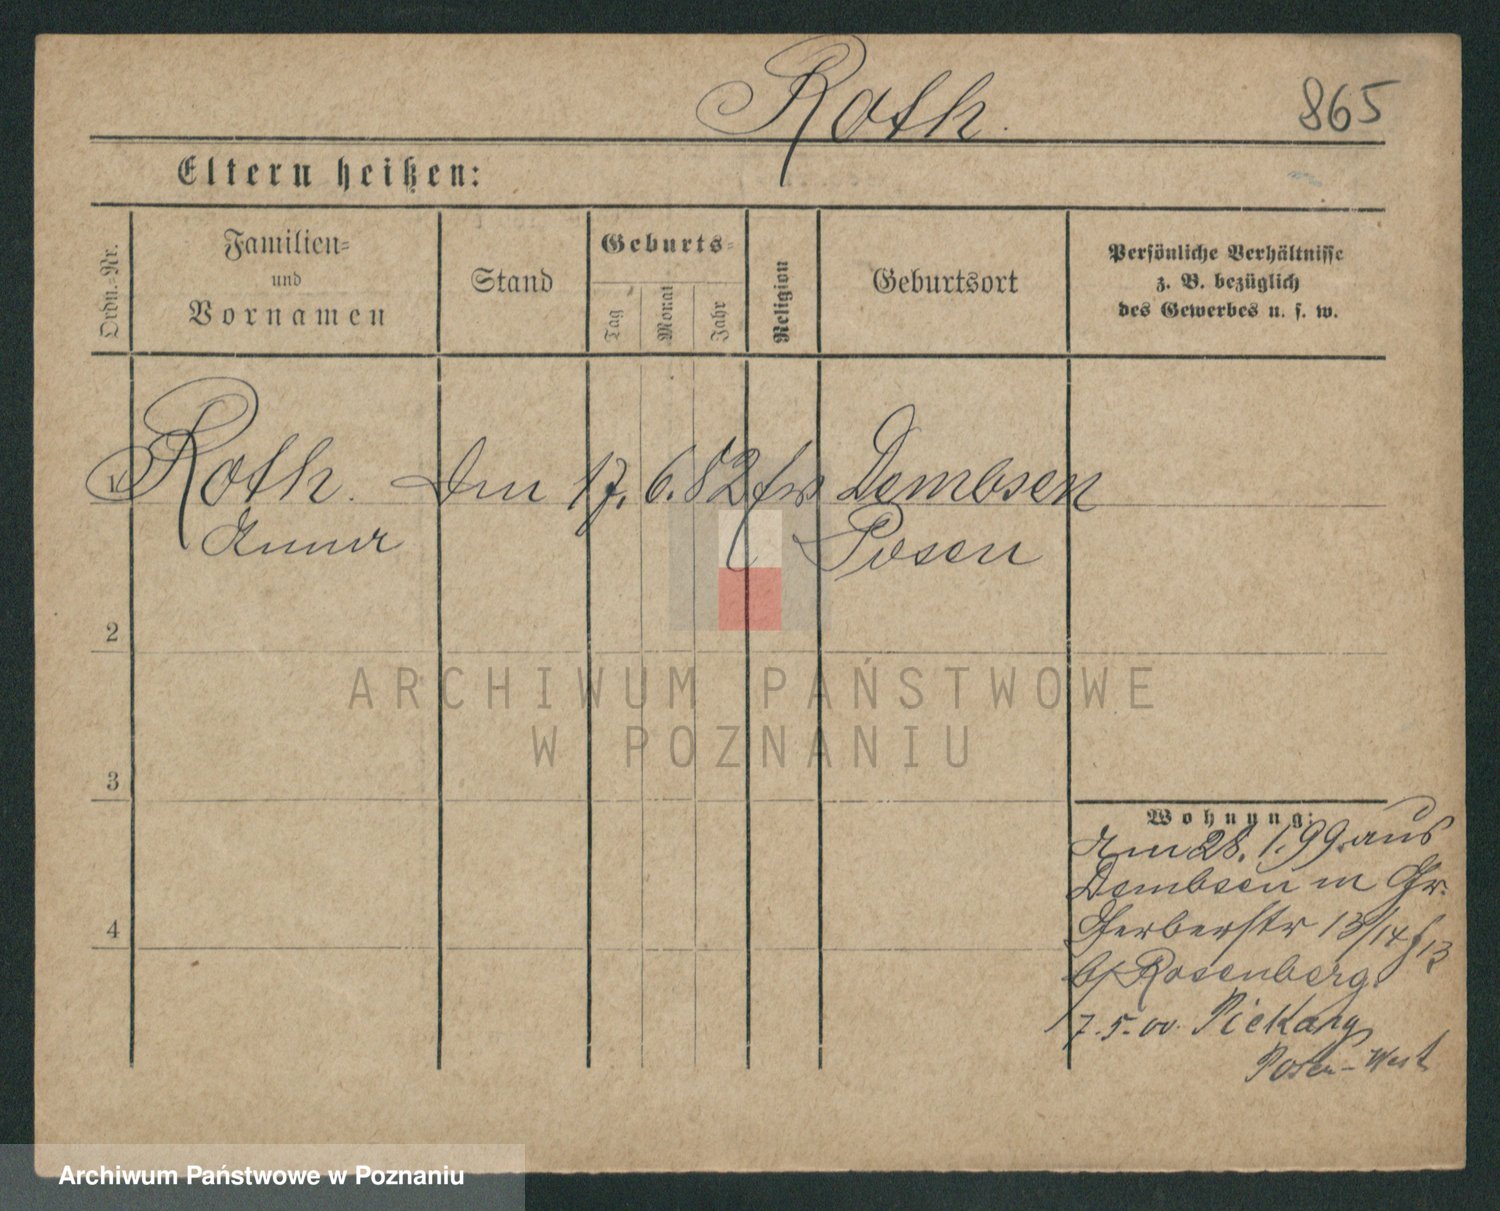 Roth. 865
Eltern heißen:
Ordn.-Nr.
Familien-
und
Vornamen
Stand
Geburts-
Tag
Monat
Jahr
Religion
Geburtsort
Persönliche Verhältnisse
z. B. bezüglich
des Gewerbes u. s. w.
1 Roth. 17. 6. 82 Dembsen
Anna Posen
2
3
4
Wohnung:
Am 28. 1. 99 aus
Dembsen in Gr.
Gerberstr 13/14
b/ Rosenberg.
7. 5. 00.
Posen-West
ARCHIWUM PAŃSTWOWE
W POZNANIU
Archiwum Państwowe w Poznaniu